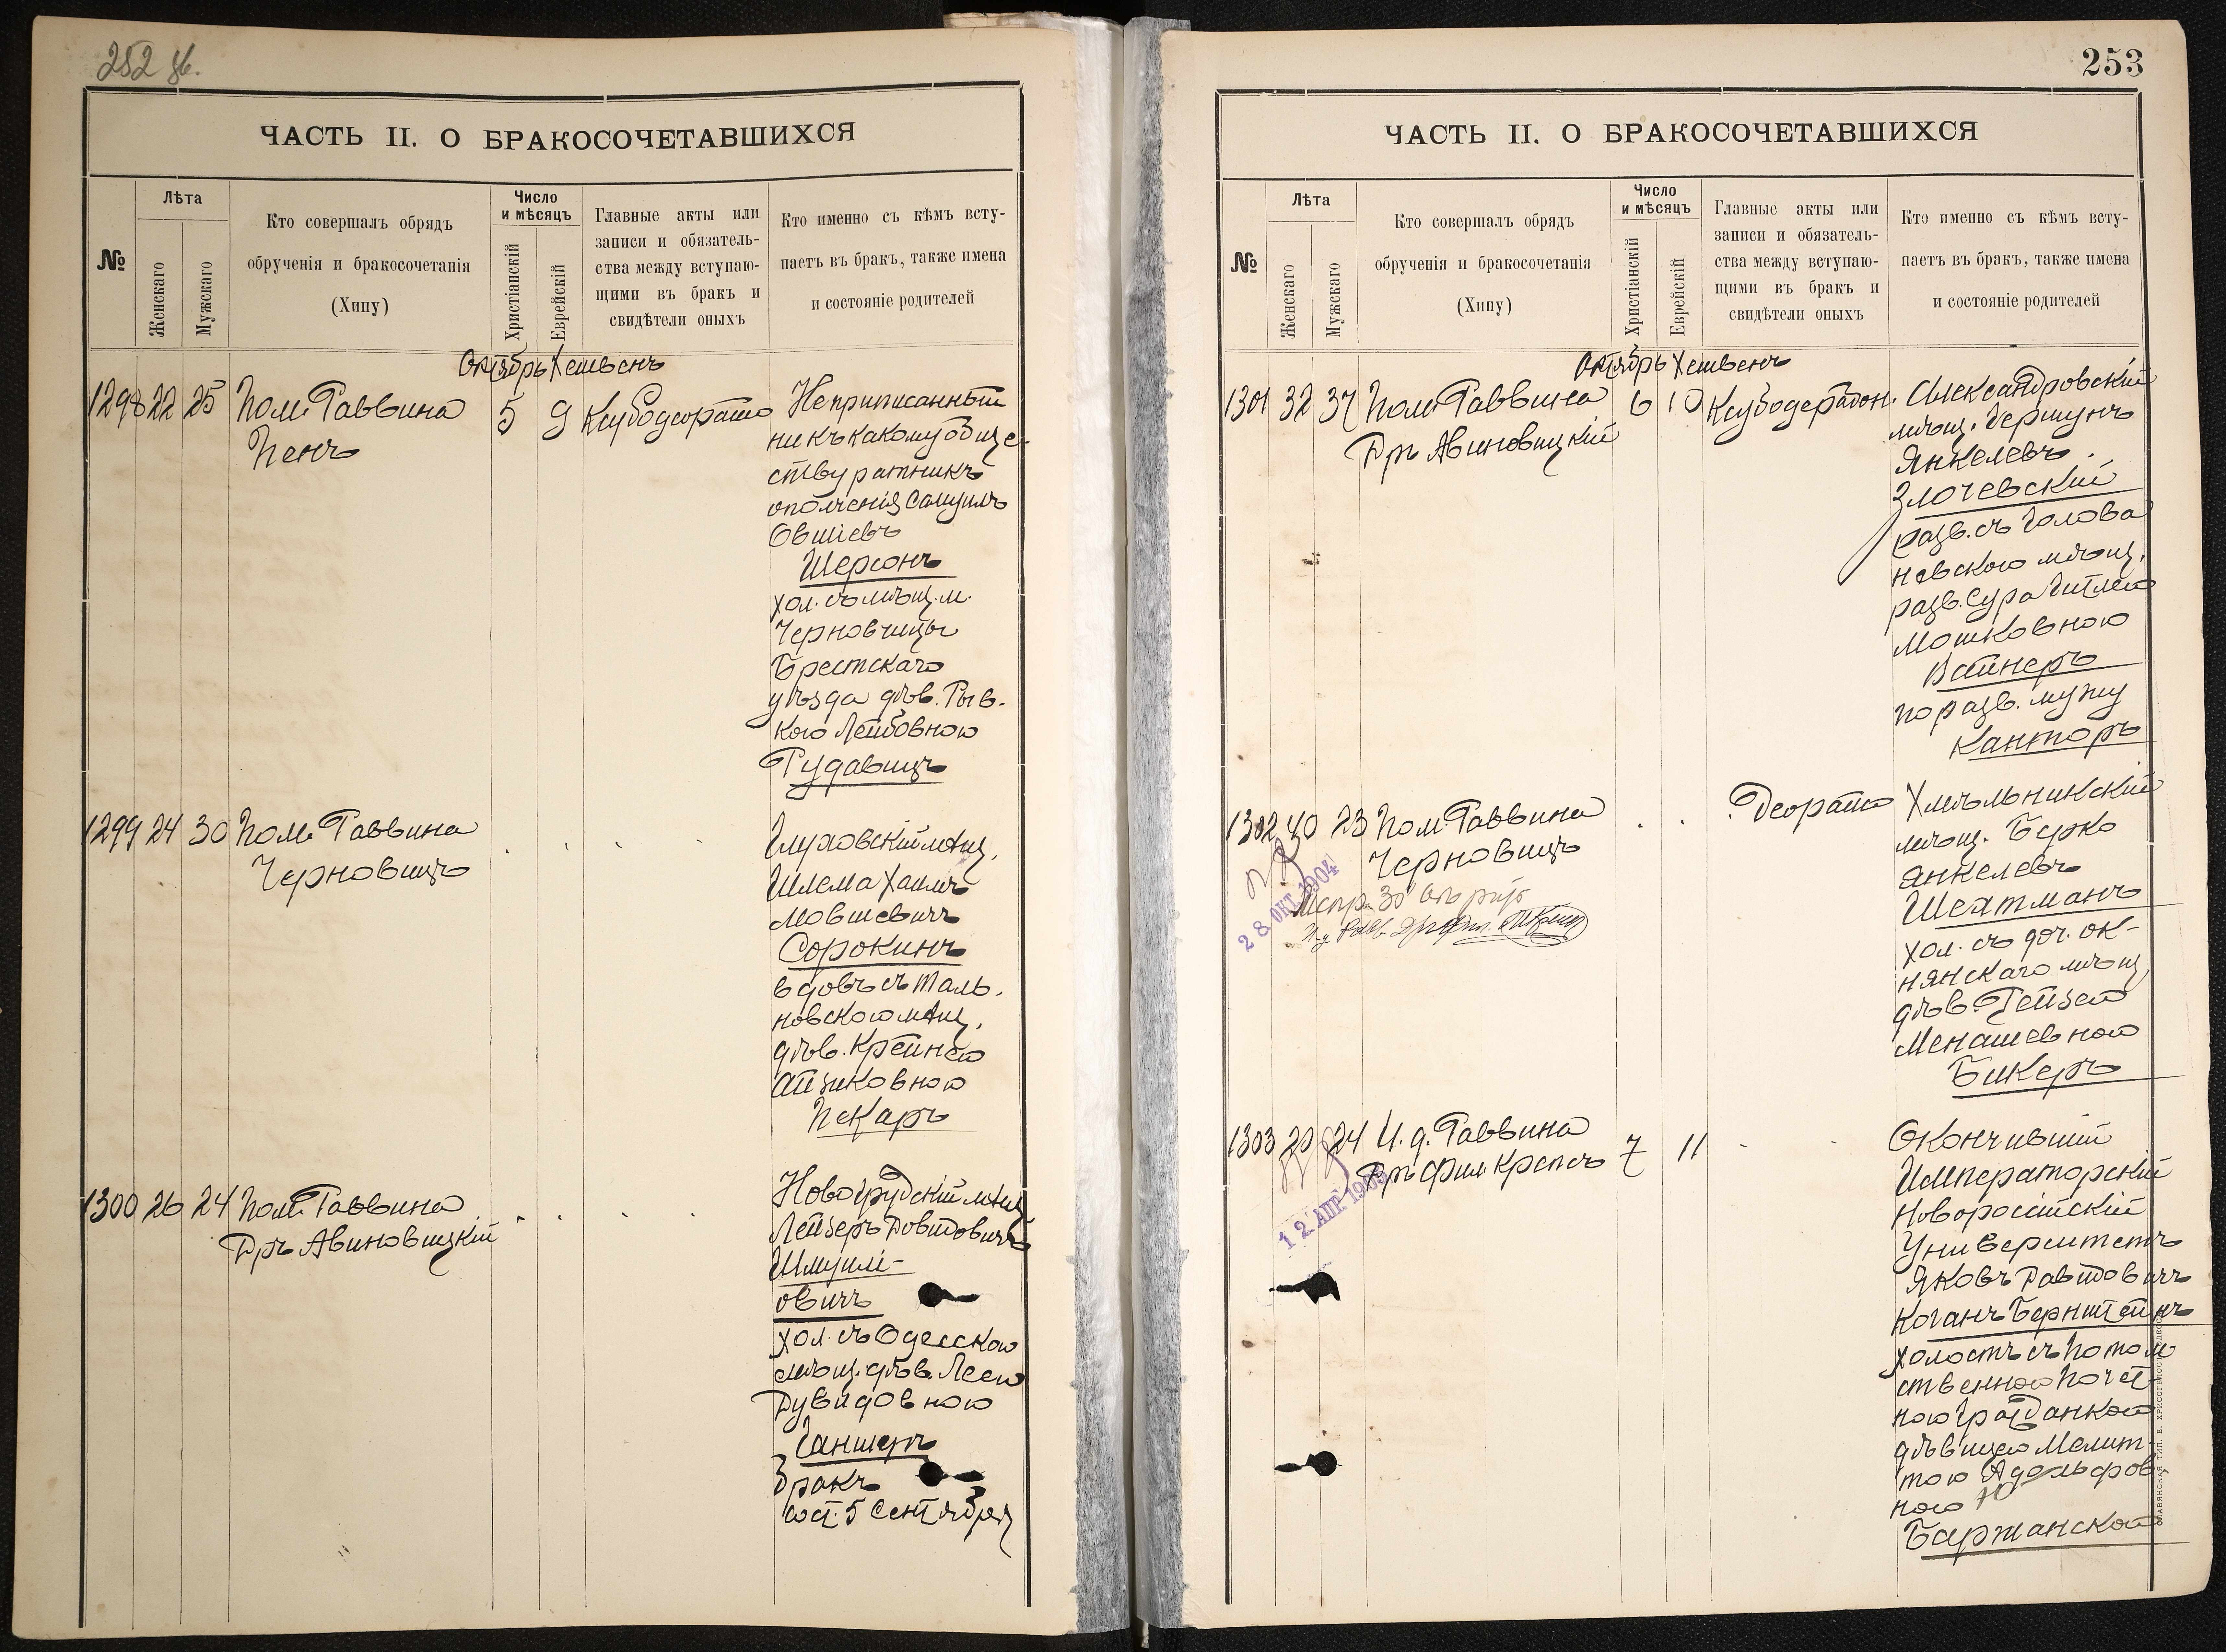 252 об.
ЧАСТЬ II. О БРАКОСОЧЕТАВШИХСЯ
№
Лѣта
Женскаго
Мужскаго
Кто совершалъ обрядъ
обрученія и бракосочетанія
(Хипу)
Число
и мѣсяцъ
Христіанскій
Еврейскій
Главные акты или
записи и обязатель-
ства между вступаю-
щими въ бракъ и
свидѣтели оныхъ
Кто именно съ кѣмъ всту-
паетъ въ бракъ, также имена
и состояніе родителей
Октябрь Хешвенъ
1298 22 25 Пом. Раввина
Пенъ
5 9 Ксубодеорайто
Неприписанный
ни къ какому обще-
ству ратникъ
ополченія Самуилъ
Овшіевъ
Шерсонъ
хол. съ мѣщ. м.
Черновчицы
Брестскаго
уѣзда дѣв. Рыв-
кою Лейбовною
Рудавицъ
1299 24 30 Пом. Раввина
Черновицъ
Глуховскій мѣщ.
Шлема Хаимъ
Мовшевичъ
Сорокинъ
вдовъ съ Таль-
новскою мѣщ.
дѣв. Крейнею
Айзиковною
Пекаръ
1300 26 24 Пом. Раввина
Дръ Авиновицкій
Новогрудскій мѣщ.
Лейзеръ Довидовичъ
Шмуйли-
овичъ
хол. съ Одесскою
мѣщ. дѣв. Леею
Дувидовною
Ганшеръ
Бракъ
сост. 5 Сентября
253
ЧАСТЬ II. О БРАКОСОЧЕТАВШИХСЯ
№
Лѣта
Женскаго
Мужскаго
Кто совершалъ обрядъ
обрученія и бракосочетанія
(Хипу)
Число
и мѣсяцъ
Христіанскій
Еврейскій
Главные акты или
записи и обязатель-
ства между вступаю-
щими въ бракъ и
свидѣтели оныхъ
Кто именно съ кѣмъ всту-
паетъ въ бракъ, также имена
и состояніе родителей
Октябрь Хешвенъ
1301 32 37 Пом. Раввина
Дръ Авиновицкій
6 10 Ксубодерабон.
Александровскій
мѣщ. Гершунъ
Янкелевъ
Злочевскій
разв. съ Голова
невскою мѣщ.
разв. Сура Гитлею
Мошковною
Вайнеръ
по разв. мужу
Канторъ
1302 40 23 Пом. Раввина
Черновицъ
28 ОКТ 1904
Деорайто
Хмѣльникскій
мѣщ. Берко
Янкелевъ
Шехтманъ
хол. съ доч. ок-
нянскаго мѣщ.
дѣв. Рейзею
Менашевною
Бикеръ
1303 20 24 И. д. Раввина
Дръ Фил. Крепсъ
7 11
12 АПР
Окончившій
Императорскій
Новороссійскій
Университетъ
Яковъ Давидовичъ
Коганъ Бернштейнъ
холостъ съ Потом
ственною Почет-
ною Гражданкою
дѣвицею Мелит-
тою Адольфов
ною
Баржанскою
СЛАВЯНСКАЯ ТИП. Е. ХРИСОГЕЛОСЪ ОДЕССА